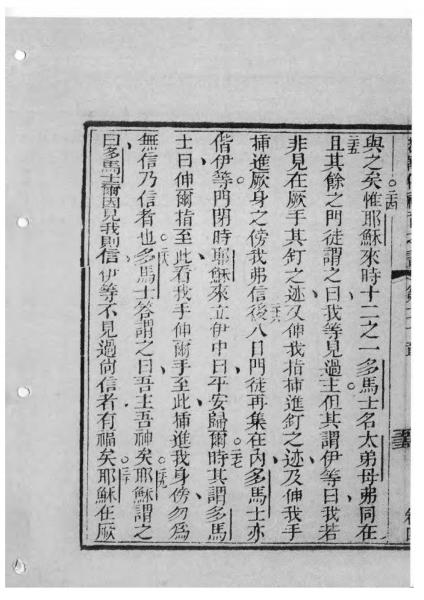 與之矣。二四惟耶穌來時十二之一多馬士名太弟母弗同在
二五且其餘之門徒謂之曰我等見過主但其謂伊等曰我若
非見在厥手其釘之迹又伸我指插進釘之迹及伸我手
插進厥身之傍我弗信。二六後八日門徒再集在內多馬士亦
偕伊等門閉時耶穌來立伊中曰平安歸爾時。二七其謂多馬
士曰伸爾指至此看我手伸爾手至此插進我身傍勿為
無信乃信者也。二八多馬士答謂之曰吾主吾神矣。二九耶穌謂之
曰多馬士爾因見我則信伊等不見過尚信者有福矣。三十耶穌在厥